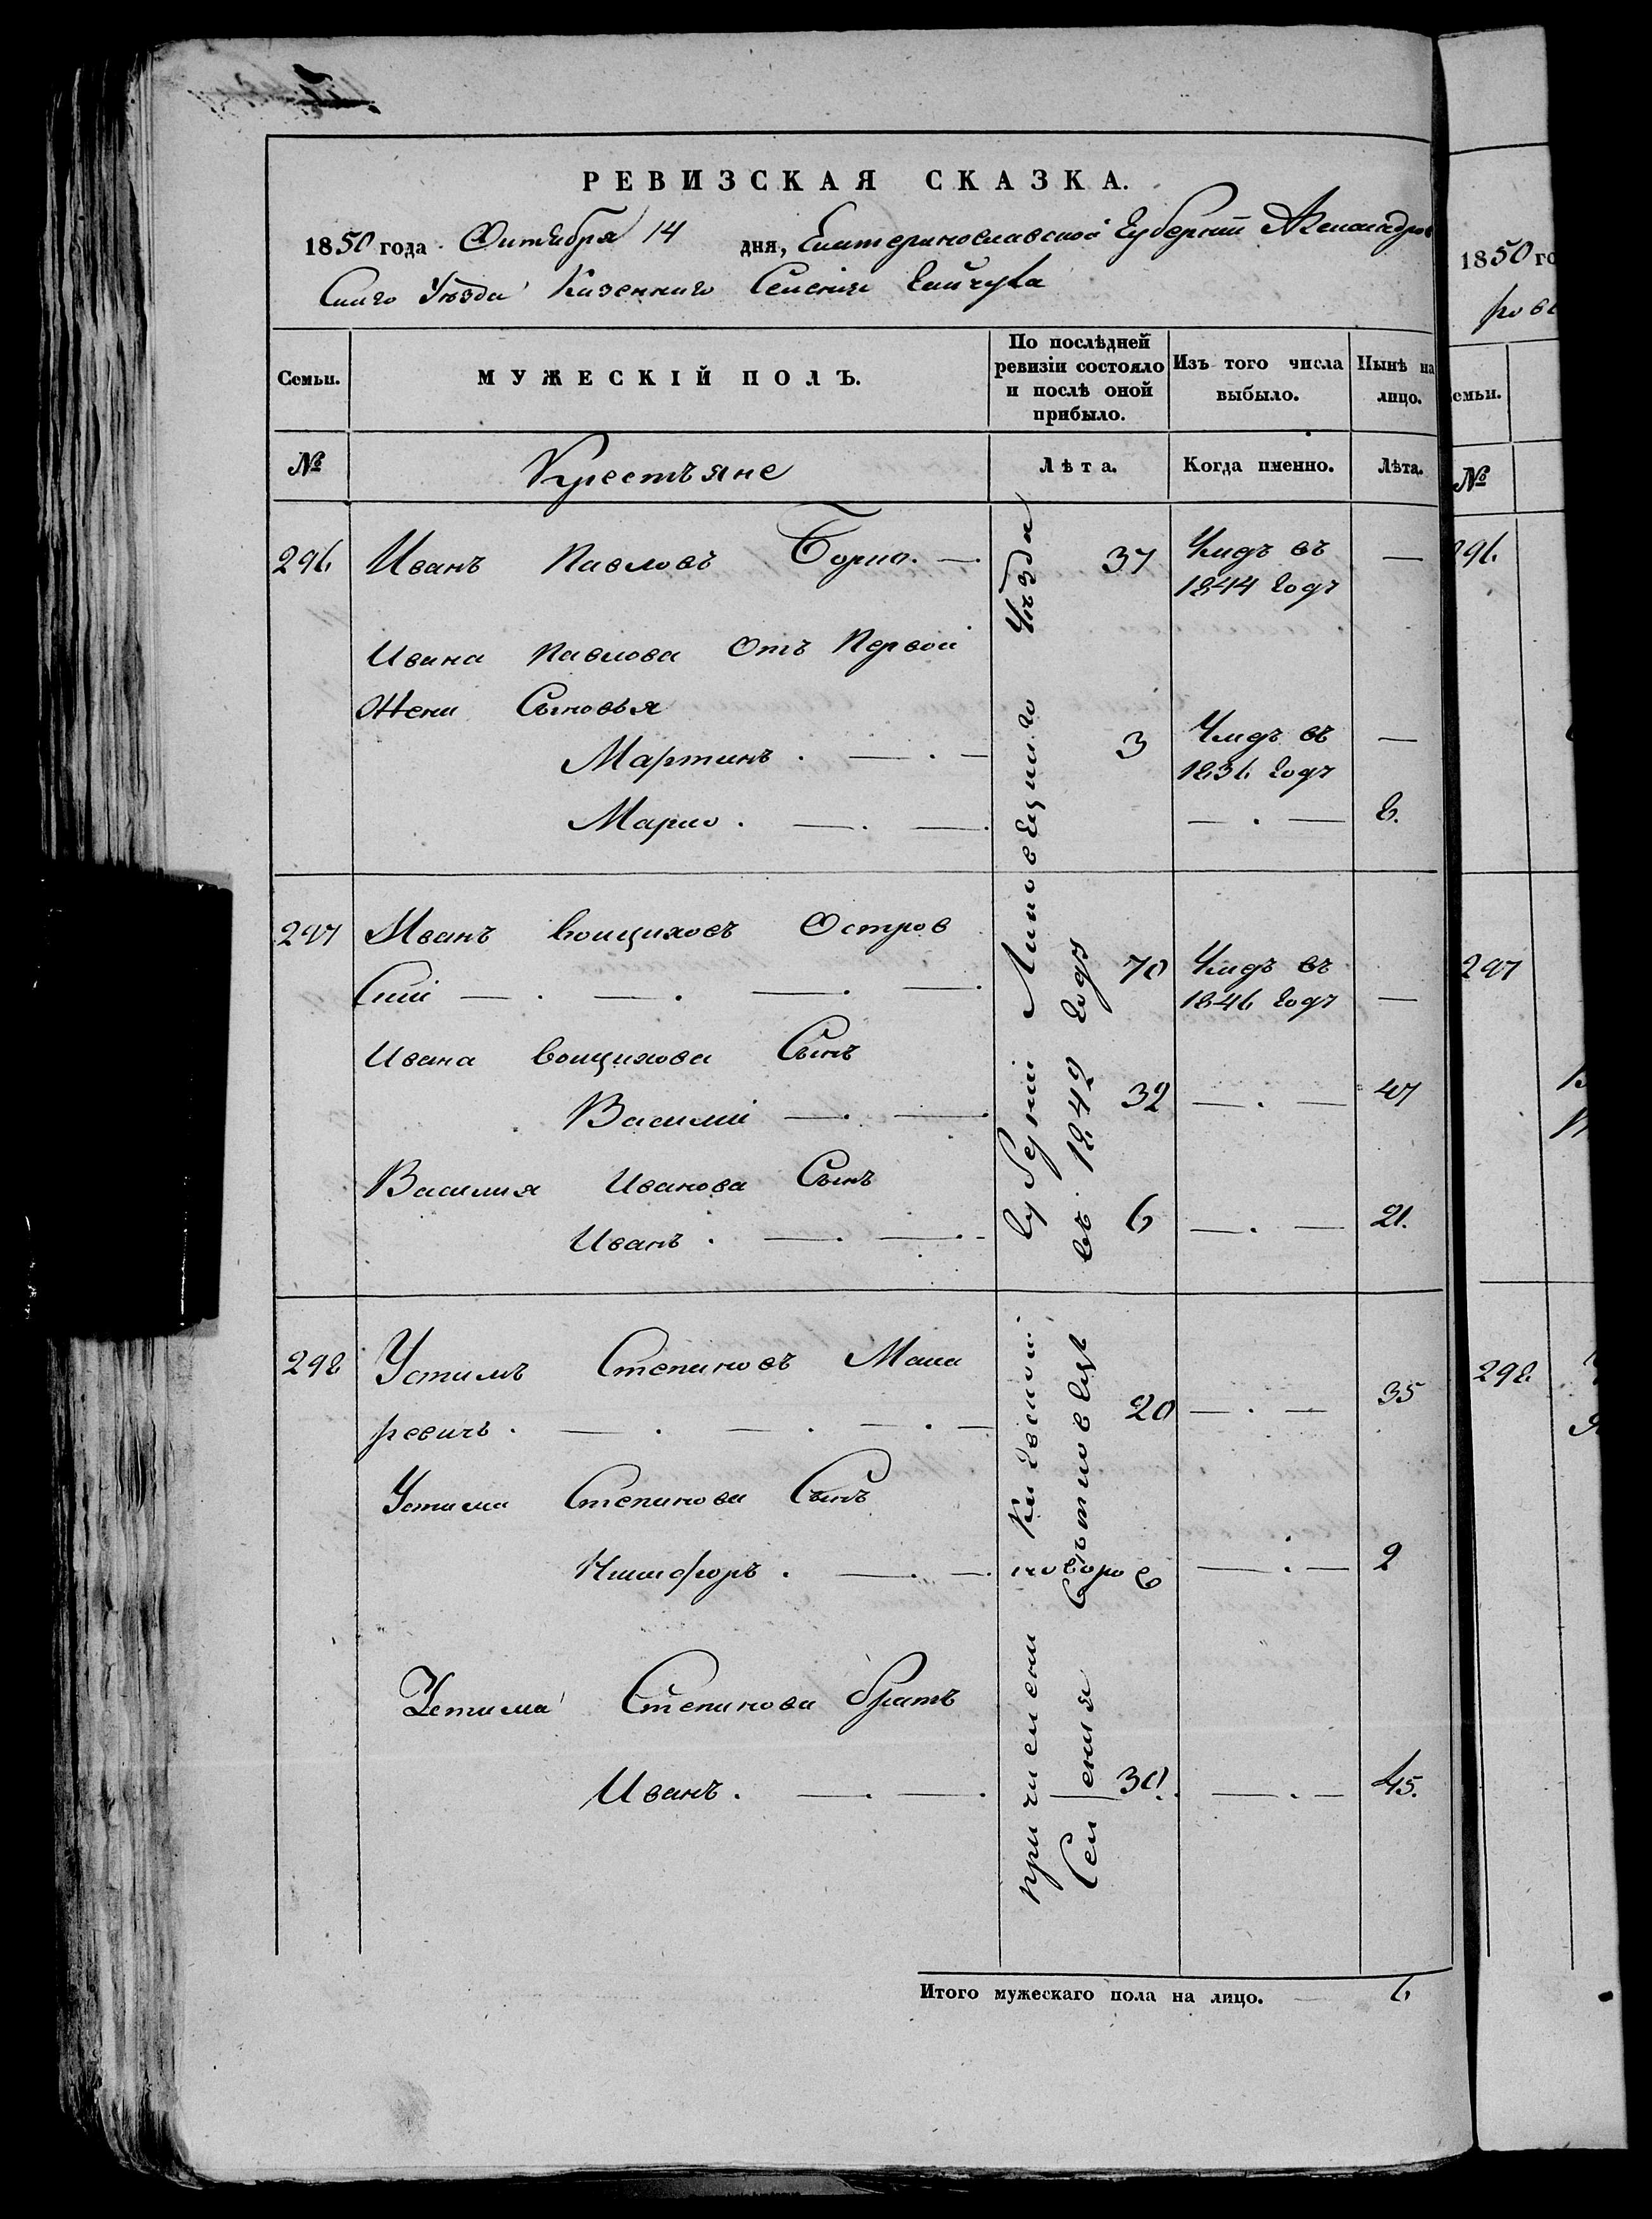 РЕВИЗСКАЯ СКАЗКА.
1850 года Октября 14 дня, Екатеринославской Губернии Александров
скаго Уезда Казеннаго Селения Гайчула
Семьи.
МУЖЕСКІЙ ПОЛЪ.
По послѣдней ревизіи состояло и послѣ оной прибыло.
Изъ того числа выбыло.
Нынѣ на лицо.
№
Крестъяне
Лѣта.
Когда именно.
Лѣта.
296 Иванъ Павловъ 37 Умръ въ —
1844 годъ
Ивана Павлова Отъ Первой
Жени Сыновья
Мартинъ . — . — 3 Умръ въ —
1836 годъ
Марко . — . — . — . — 8.
297 Иванъ Войциховъ Остров
скій — . — . — . — . 70 Умръ въ
1846 годъ —
Ивана Войцихова Сынъ
Василій — . — . 32 — . — 47
Василия Иванова Сынъ
Иванъ . — . — . - 6 — . — 21.
298 Устимъ Степановъ Мака
ревичъ . — . — . — . — 20 — . — 35
Устима Степанова Сынъ
Никифоръ . — . — . новоро — . — 2
Устима Степанова братъ
Иванъ . — . — . 30. — . — 45.
причислени Киевской губерніи Липовецкаго Уѣзда
Селения въ 1842 годъ
Итого мужескаго пола на лицо. 6
1850 го
ров
емьи.
№
296.
297
298.